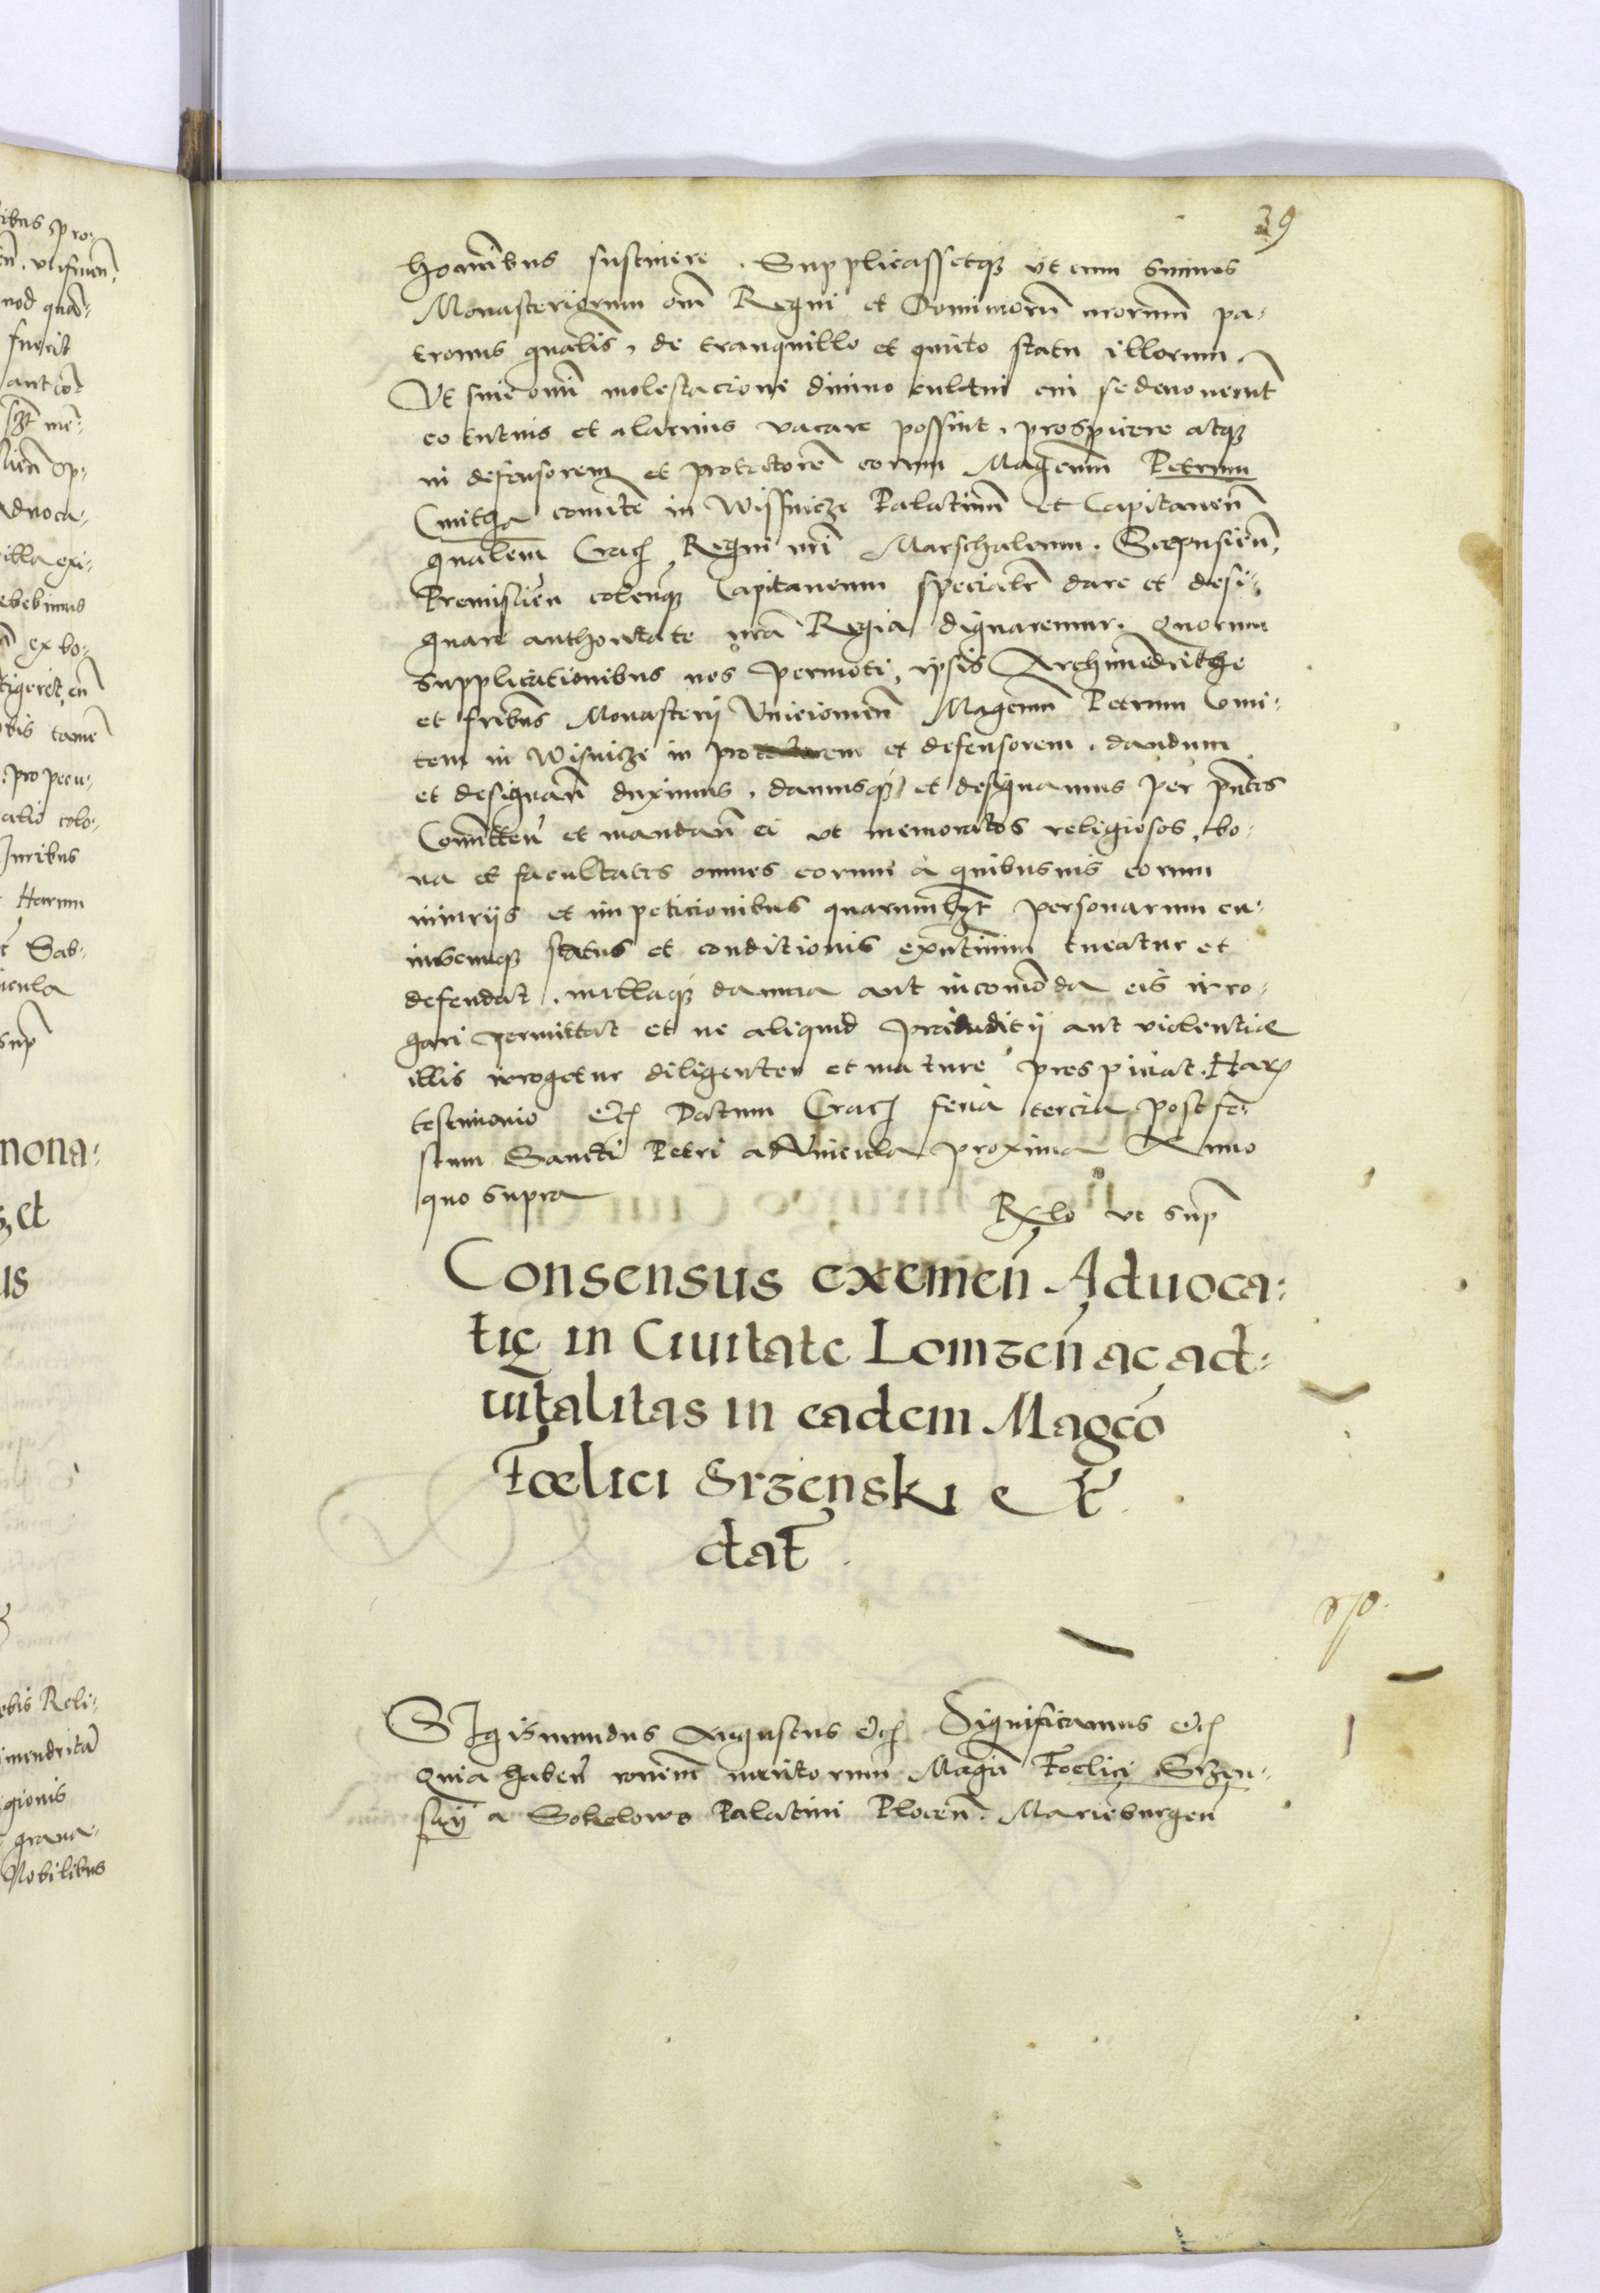 39
hominibus sustinere. Supplicassetq ut cum simus
Monasteriorum om̄ Regni et Dominiorū nrorum̄ pa-
tronus gnalis, de tranquillo et quieto statu illorum.
Ut sine omni molestacione divino cultui cui se devoverunt
eo tutius et alacrius vacare possint, prospicere atq
in defensorem et protectorē eorum Magcum̄ Petrum
Cmitha comitē in Wissnicze Palatinū et Capitaneū
gnalem̄ Crac Regni nri Marschalcum. Scepusien̄,
Premislien̄ colenq Capitaneum specialr̄ dare et desi-
gnare authoritate nrā Regia dignaremur. Quorum
supplicationibus nos permoti, ipsis Archimedrithe
et fribus Monasterij Uniciowien̄ Magcum̄ Petrum Comi-
tem in Wisnicze in protectorem et defensorem, dandum
et designan̄ duximus, damusq et designamus per pn̄tes
Comitten̄ et mandan̄ ei ut memoratos religiosos, bo-
na et facultates omnes eorum a quibusvis eorum
iniurijs et impeticionibus quarumlꝫt personarum cu-
iuscunq status et conditionis existentium tueatur et
defendat, nullaq damna aut incomoda eis irro-
gari permittat et ne aliquid praeiuditij aut violentiae
illis irrogetur diligenter et mature prospiciat. Har
testimonio Etc Datum Crac feria tercia post fe-
stum Sancti Petri ad Vincula proxima Anno
quo supra
Rlo ut sup
Consensus exemen̄ Aduoca-
tię in Ciuitate Lomzen̄ ac ad-
uitalitas in eadem Magco
Foelici Srzenski Etc
dat
SIgismundus Augustus Etc Significamus Etc
Quia haben̄ rōnem̄ meritorum Magci Foelici Srzen-
skij a Sokolowo Palatini Plocen̄. Marieburgen̄